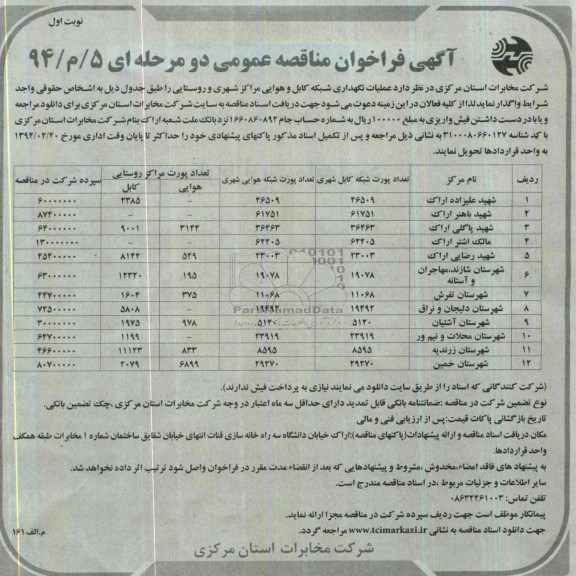 نوبت اول
آگهی فراخوان مناقصه عمومی دو مرحله ای ۹۴/م/۵
شرکت مخابرات استان مرکزی در نظر دارد عملیات نگهداری شبکه کابل و هوایی مراکز شهری و روستایی را طبق جدول ذیل به اشخاص حقوقی واجد
شرایط واگذار نماید لذا از کلیه فعالان در این زمینه دعوت می شود جهت دریافت اسناد مناقصه به سایت شرکت مخابرات استان مرکزی برای دانلود مراجعه
و یا با در دست داشتن فیش واریزی به مبلغ ۱۰۰۰۰۰ ریال به شماره حساب جام ۱۶۶۰۸۶۰۸۹۲ نزد بانک ملت شعبه اراک بنام شرکت مخابرات استان مرکزی
با کد شناسه ۳۱۰۰۰۸۰۶۶۰۱۲۷ به نشانی ذیل مراجعه و پس از تکمیل اسناد مذکور پاکتهای پیشنهادی خود را حداکثر تا پایان وقت اداری مورخ ۱۳۹۴/۰۲/۲۰
به واحد قراردادها تحویل نمایند.
ردیف نام مرکز تعداد پورت شبکه کابل شهری تعداد پورت شبکه هوایی شهری تعداد پورت مراکز روستایی سپرده شرکت در مناقصه
هوایی کابل
۱ شهید علیزاده اراک ۴۶۵۰۹ ۴۶۵۰۹ - ۲۳۸۵ ۶۰۰۰۰۰۰۰
۲ شهید باهنر اراک ۶۱۷۵۱ ۶۱۷۵۱ - - ۸۷۴۰۰۰۰۰
۳ شهید پاگلی اراک ۳۶۴۶۳ ۳۶۴۶۳ ۳۱۴۴ ۹۰۰۱ ۶۴۰۰۰۰۰۰
۴ مالک اشتر اراک ۶۲۲۰۵ ۶۲۲۰۵ - - ۱۳۰۰۰۰۰۰۰
۵ شهید رضایی اراک ۲۳۰۰۳ ۲۳۰۰۳ ۵۴۹ ۸۱۴۴ ۴۵۴۰۰۰۰۰
۶ شهرستان شازند،مهاجران
و آستانه ۱۹۰۷۸ ۱۹۰۷۸ ۱۹۵ ۱۴۳۲۰ ۶۳۰۰۰۰۰۰
۷ شهرستان تفرش ۱۱۰۶۸ ۱۱۰۶۸ ۳۷۵ ۱۶۰۴ ۴۴۷۰۰۰۰۰
۸ شهرستان دلیجان و نراق ۱۹۴۹۲ ۱۹۴۹۲ - ۵۸۰۸ ۷۲۵۰۰۰۰۰
۹ شهرستان آشتیان ۵۱۲۰ ۹۷۸ ۱۹۷۵ ۳۰۰۰۰۰۰۰
۱۰ شهرستان محلات و نیم ور ۲۳۹۱۹ ۲۳۹۱۹ - ۱۱۹۹ ۶۴۷۰۰۰۰۰
۱۱ شهرستان زرندیه ۸۵۹۵ ۸۵۹۵ ۸۳۳ ۱۱۱۲۳ ۴۶۶۰۰۰۰۰
۱۲ شهرستان خمین ۲۹۲۷۰ ۲۹۲۷۰ ۶۸۹۹ ۲۰۷۹ ۸۰۷۰۰۰۰۰
ParsNamadData
(شرکت کنندگانی که اسناد را از طریق سایت دانلود می نمایند نیازی به پرداخت فیش ندارند).
نوع تضمین شرکت در مناقصه :ضمانتنامه بانکی قابل تمدید دارای حداقل سه ماه اعتبار در وجه شرکت مخابرات استان مرکزی ،چک تضمین بانکی.
تاریخ بازگشائی پاکات قیمت:پس از ارزیابی فنی و مالی
مکان دریافت اسناد مناقصه و ارائه پیشنهادات(پاکتهای مناقصه):اراک خیابان دانشگاه سه راه خانه سازی قنات انتهای خیابان شقایق ساختمان شماره ۱ مخابرات طبقه همکف
واحد قراردادها.
به پیشنهاد های فاقد امضاء،مخدوش ،مشروط و پیشنهادهایی که بعد از انقضاء مدت مقرر در فراخوان واصل شود ترتیب اثر داده نخواهد شد.
سایر اطلاعات و جزئیات مربوط ،در اسناد مناقصه مندرج است.
تلفن تماس: ۰۸۶۳۲۲۶۱۰۰۳
پیمانکار موظف است جهت ردیف سپرده شرکت در مناقصه مجزا ارائه نماید.
جهت دانلود اسناد مناقصه به نشانی www.tcimarkazi.ir مراجعه گردد.
م.الف ۱۶۱
شرکت مخابرات استان مرکزی